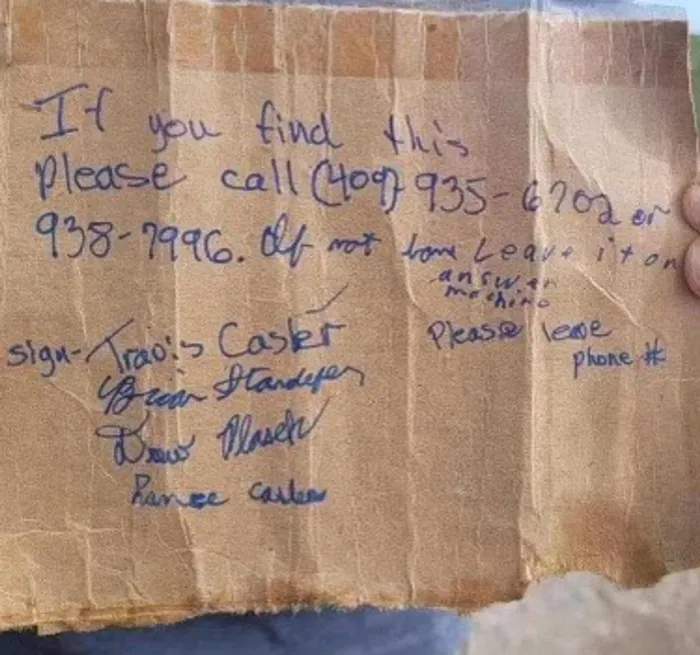 If you find this
Please call (409) 935-6702 or
938-7996. If not home Leave it on
answer
machine
Please leave
phone #
sign- Travis Casler
Brian Standefer
Drew
Casler